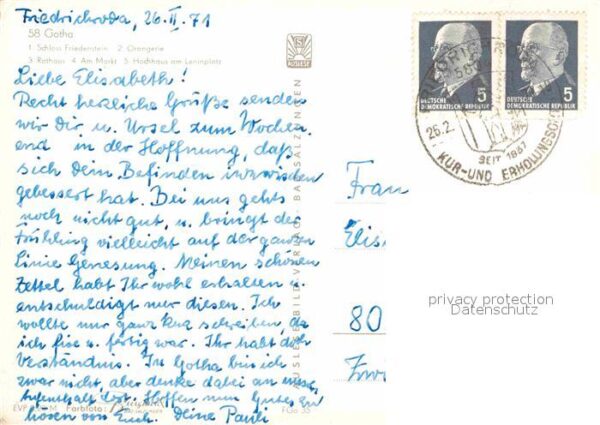 Friedrichroda, 26.II.71
58 Gotha
1 Schloss Friedenstein 2 Orangerie
3 Rathaus 4 Am Markt 5 Hochhaus am Leninplatz
AUSLESE
Liebe Elisabeth!
Recht herzliche Grüße senden
wir Dir u. Ursel zum Wochen-
end in der Hoffnung, daß
sich dein Befinden inzwischen
gebessert hat. Bei uns gehts
noch nicht gut, u. bringt der
Frühling vielleicht auf der ganzen
Linie Genesung. Meinen schönen
Zettel habt Ihr wohl erhalten u.
entschuldigt nur diesen. Ich
wollte nur ganz kurz schreiben, da
ich fix u. fertig war. Ihr habt doch
Verständnis. In Gotha bin ich
zwar nicht, aber denke dabei an
Aufenthalt dort. Hoffen nun Gutes zu
hören von Euch. Deine Pauli
EVP M Farbfoto:
FGo 35
AUSLESE-BILD-VERLAG BAD SALZUNGEN
DEUTSCHE
DEMOKRATISCHE REPUBLIK 5
DEUTSCHE
DEMOKRATISCHE REPUBLIK 5
26.2.
SEIT 1837
KUR-UND ERHOLUNGSORT
Frau
Elis
80
privacy protection
Datenschutz